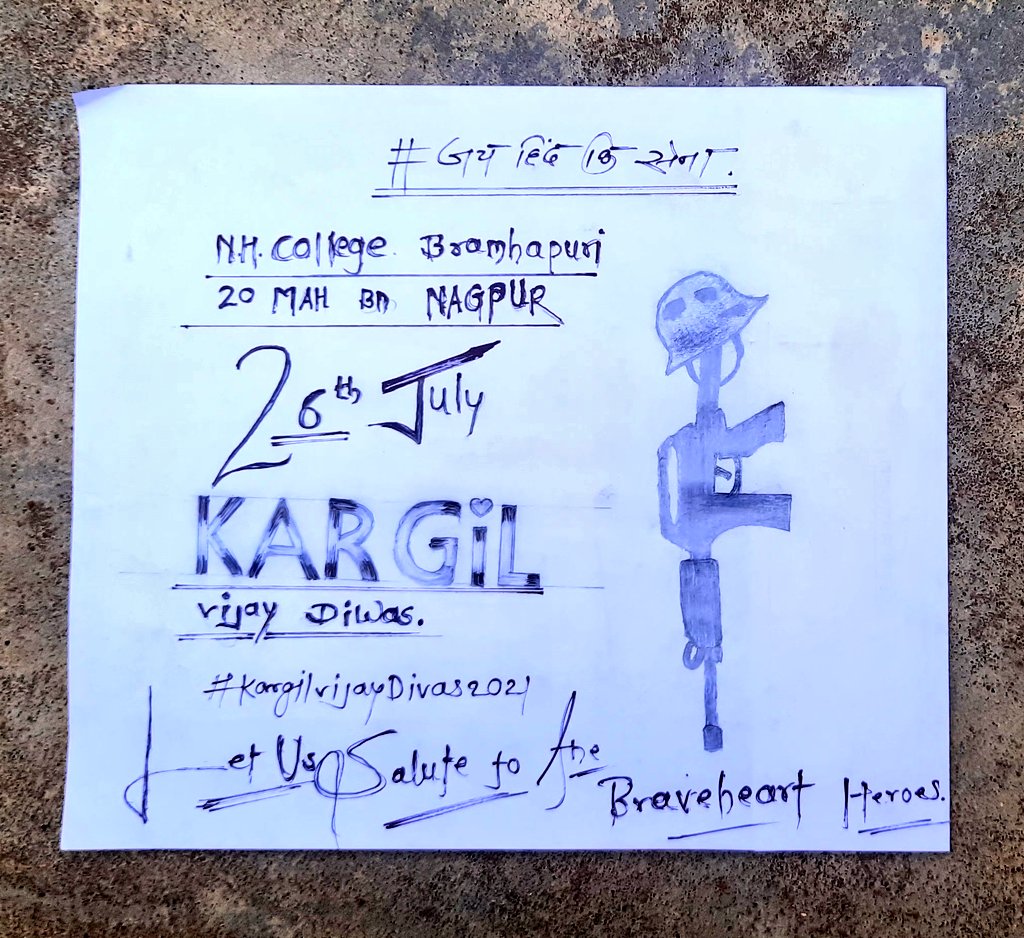 # जय हिंद कि सेना.
N.H. College. Bramhapuri
20 MAH Bn NAGPUR
26th July
KARGiL
vijay Diwas.
#KargilvijayDivas2021
Let Us Salute to the
Braveheart Heroes.